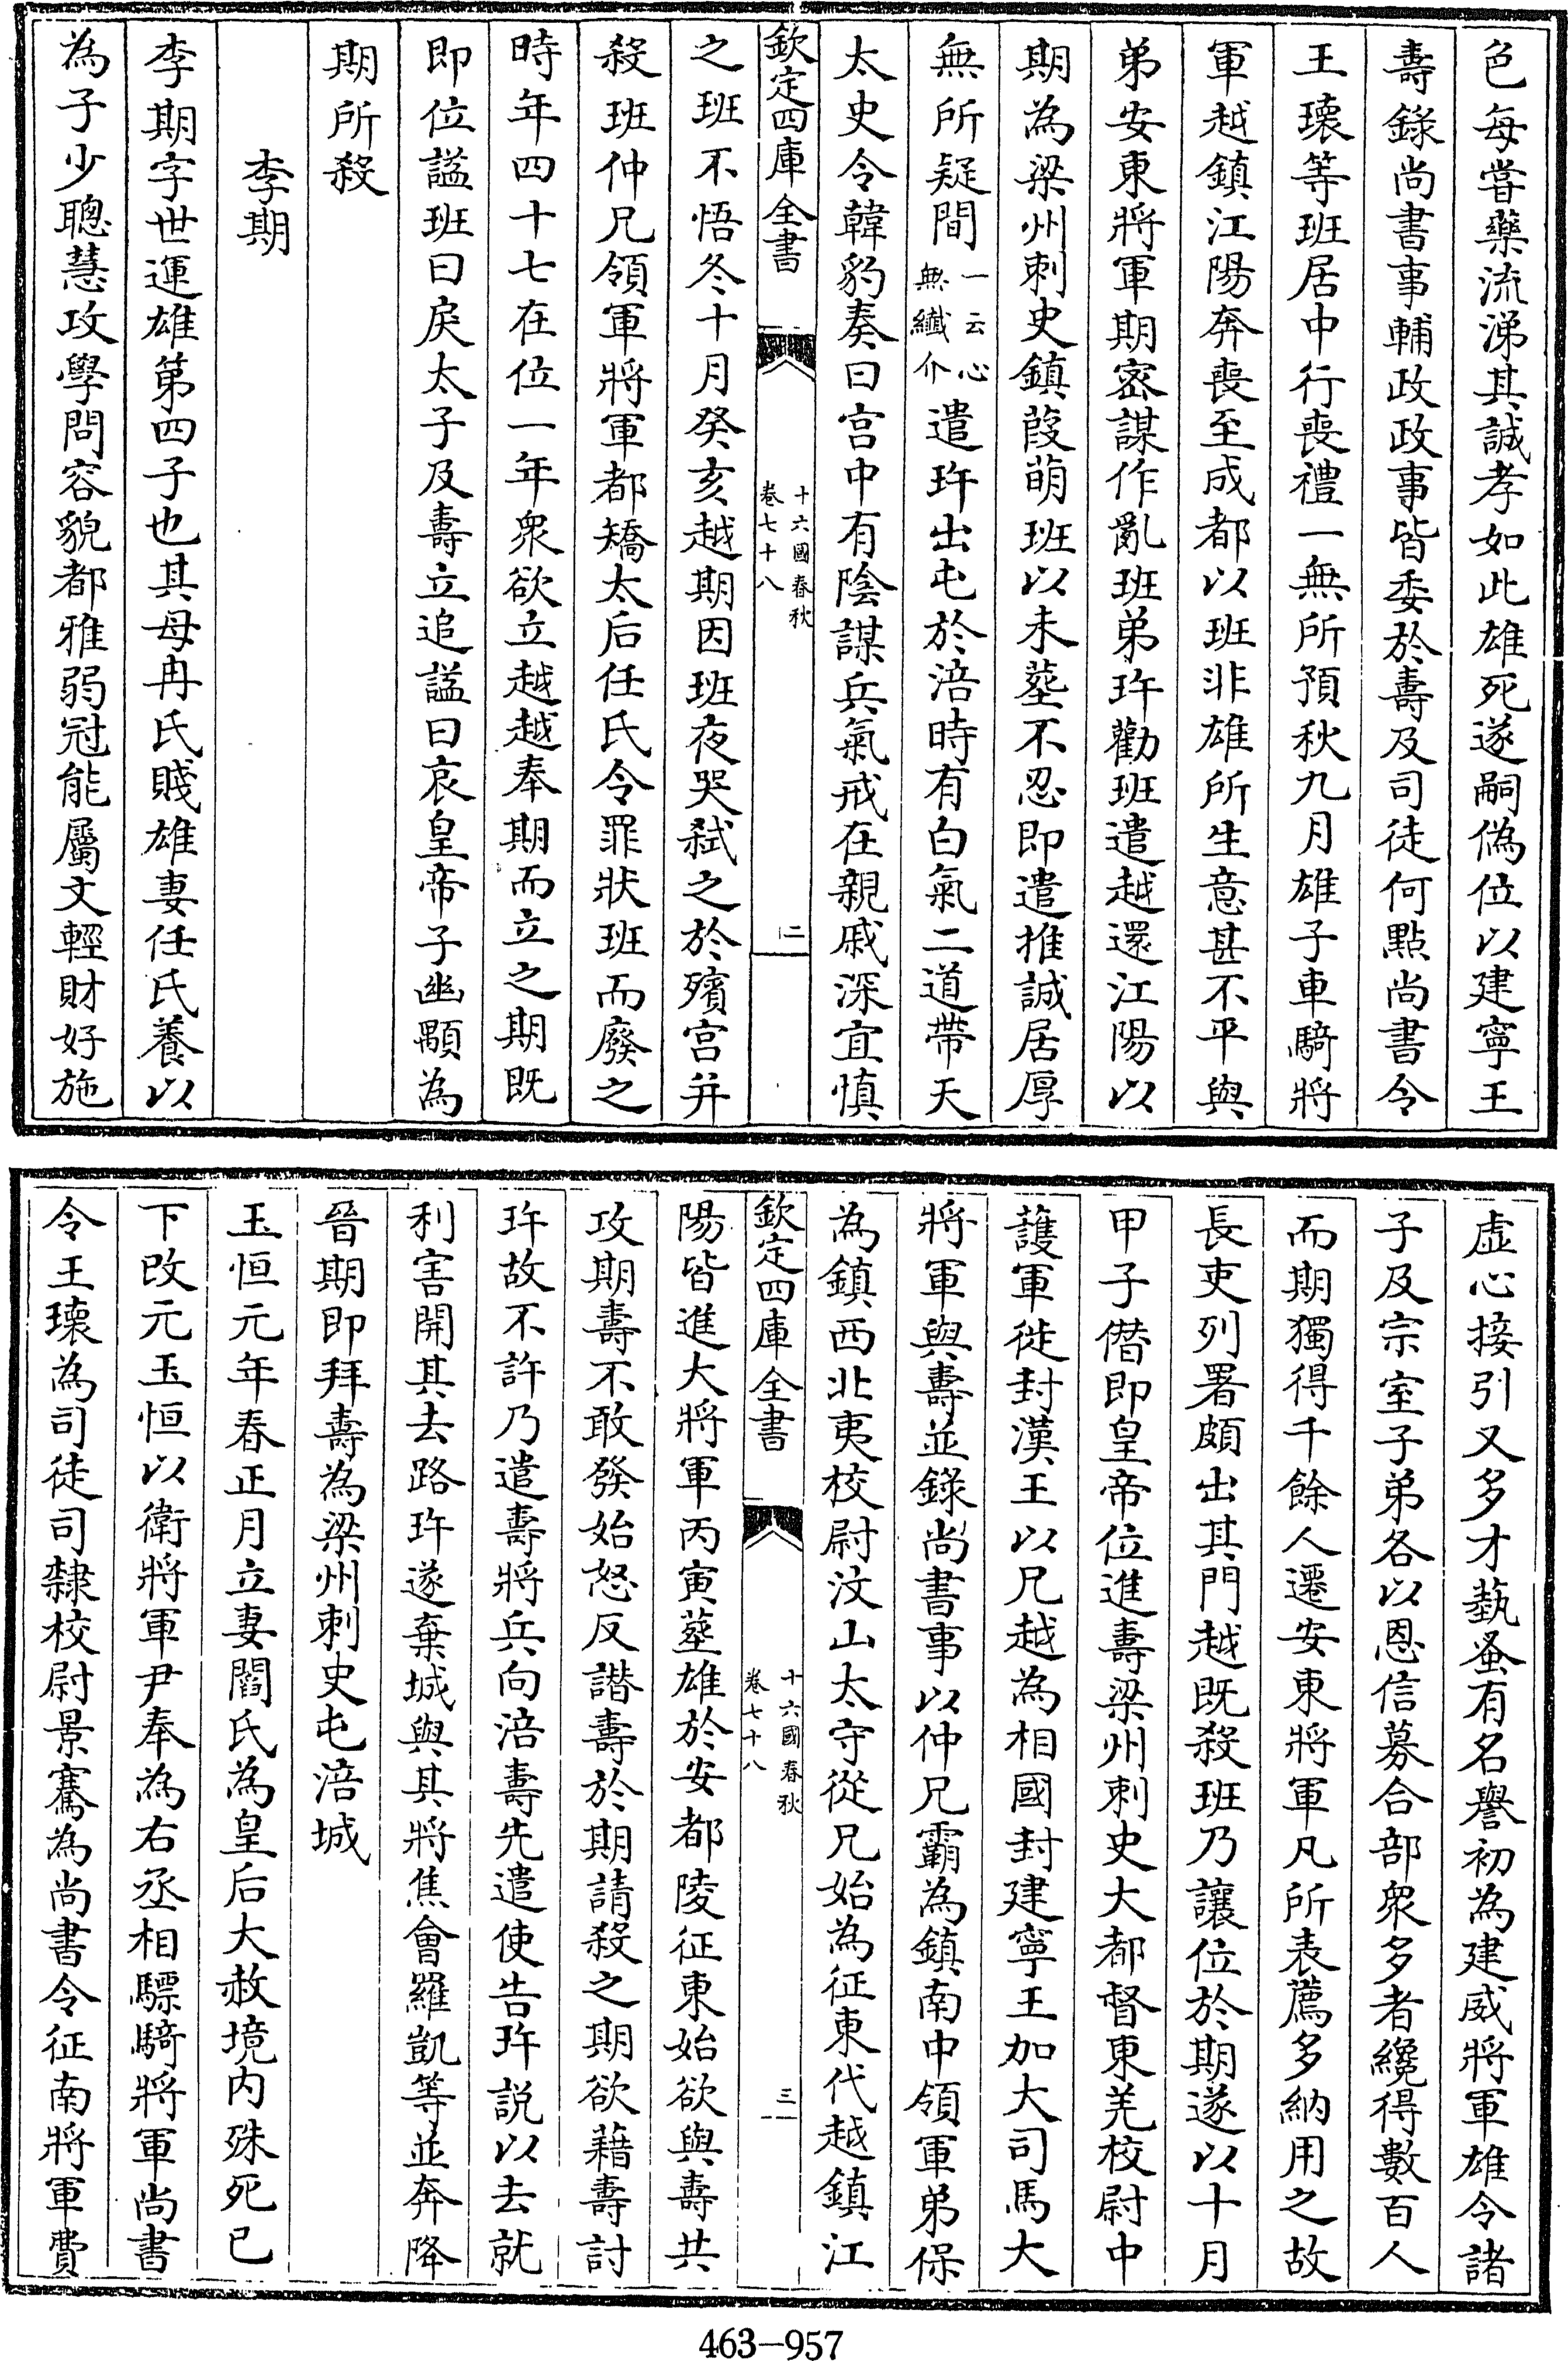 色每嘗藥流涕其誠孝如此雄死遂嗣偽位以建寧王
壽錄尚書事輔政政事皆委於壽及司徒何點尚書令
王瓌等班居中行喪禮一無所預秋九月雄子車騎將
軍越鎮江陽奔喪至成都以班非雄所生意甚不平與
弟安東將軍期密謀作亂班弟玝勸班遣越還江陽以
期為梁州刺史鎮葭萌班以未塟不忍即遣推誠居厚
無所疑間一云心無纖介遣玝出屯於涪時有白氣二道帶天
太史令韓豹奏曰宫中有陰謀兵氣戒在親戚深宜慎
欽定四庫全書
十六國春秋
卷七十八
二
之班不悟冬十月癸亥越期因班夜哭弑之於殯宫并
殺班仲兄領軍將軍都矯太后任氏令罪狀班而廢之
時年四十七在位一年衆欲立越越奉期而立之期既
即位謚班曰戾太子及壽立追謚曰哀皇帝子幽顒為
期所殺
李期
李期字世運雄第四子也其母冉氏賤雄妻任氏養以
為子少聰慧攻學問容貌都雅弱冠能屬文輕財好施
虛心接引又多才藝蚤有名譽初為建威將軍雄令諸
子及宗室子弟各以恩信募合部衆多者纔得數百人
而期獨得千餘人遷安東將軍凡所表薦多納用之故
長吏列署頗出其門越既殺班乃讓位於期遂以十月
甲子僭即皇帝位進壽梁州刺史大都督東羌校尉中
護軍徙封漢王以兄越為相國封建寧王加大司馬大
將軍與壽並錄尚書事以仲兄霸為鎮南中領軍弟保
為鎮西北夷校尉汶山太守從兄始為征東代越鎮江
欽定四庫全書
十六國春秋
卷七十八
三
陽皆進大將軍丙寅塟雄於安都陵征東始欲與壽共
攻期壽不敢發始怒反譖壽於期請殺之期欲藉壽討
玝故不許乃遣壽將兵向涪壽先遣使告玝説以去就
利害開其去路玝遂棄城與其將焦會羅凱等並奔降
晉期即拜壽為梁州刺史屯涪城
玉恒元年春正月立妻閻氏為皇后大赦境内殊死已
下改元玉恒以衛將軍尹奉為右丞相驃騎將軍尚書
令王瓌為司徒司隸校尉景騫為尚書令征南將軍費
463-957